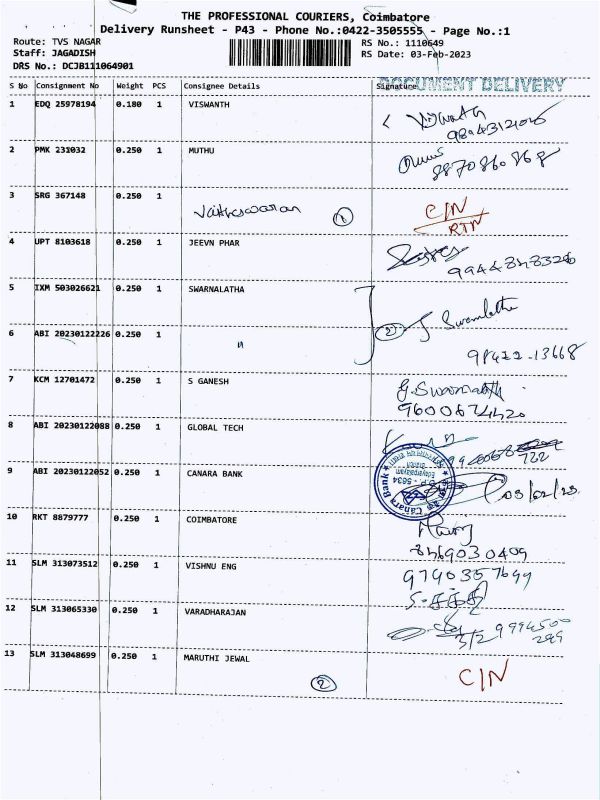 THE PROFESSIONAL COURIERS, Coimbatore
Delivery Runsheet - P43 - Phone No.:0422-3505555 - Page No.:1
Route: TVS NAGAR
RS No.: 1110649
Staff: JAGADISH
RS Date: 03-Feb-2023
DRS No.: DCJB111064901
DOCUMENT DELIVERY
S No Consignment No Weight PCS Consignee Details Signature
1 EDQ 25978194 0.180 1 VISWANTH
Viswanth
2 PMK 231032 0.250 1 MUTHU
8870860868
3 SRG 367148 0.250 1
Vaitheswaran 1 C/N
RTN
4 UPT 8103618 0.250 1 JEEVN PHAR
5 IXM 503026621 0.250 1 SWARNALATHA
Swarnlatha
6 ABI 20230122226 0.250 1 " 2
98422-13668
7 KCM 12701472 0.250 1 S GANESH
G. Swarnalatha
9600674420
8 ABI 20230122088 0.250 1 GLOBAL TECH
722
9 ABI 20230122052 0.250 1 CANARA BANK
Canara Bank
03/02/23
10 RKT 8879777 0.250 1 COIMBATORE
8469030409
11 SLM 313073512 0.250 1 VISHNU ENG
9790357699
12 SLM 313065330 0.250 1 VARADHARAJAN
3/2 9994500
289
13 SLM 313048699 0.250 1 MARUTHI JEWAL
2 C/N